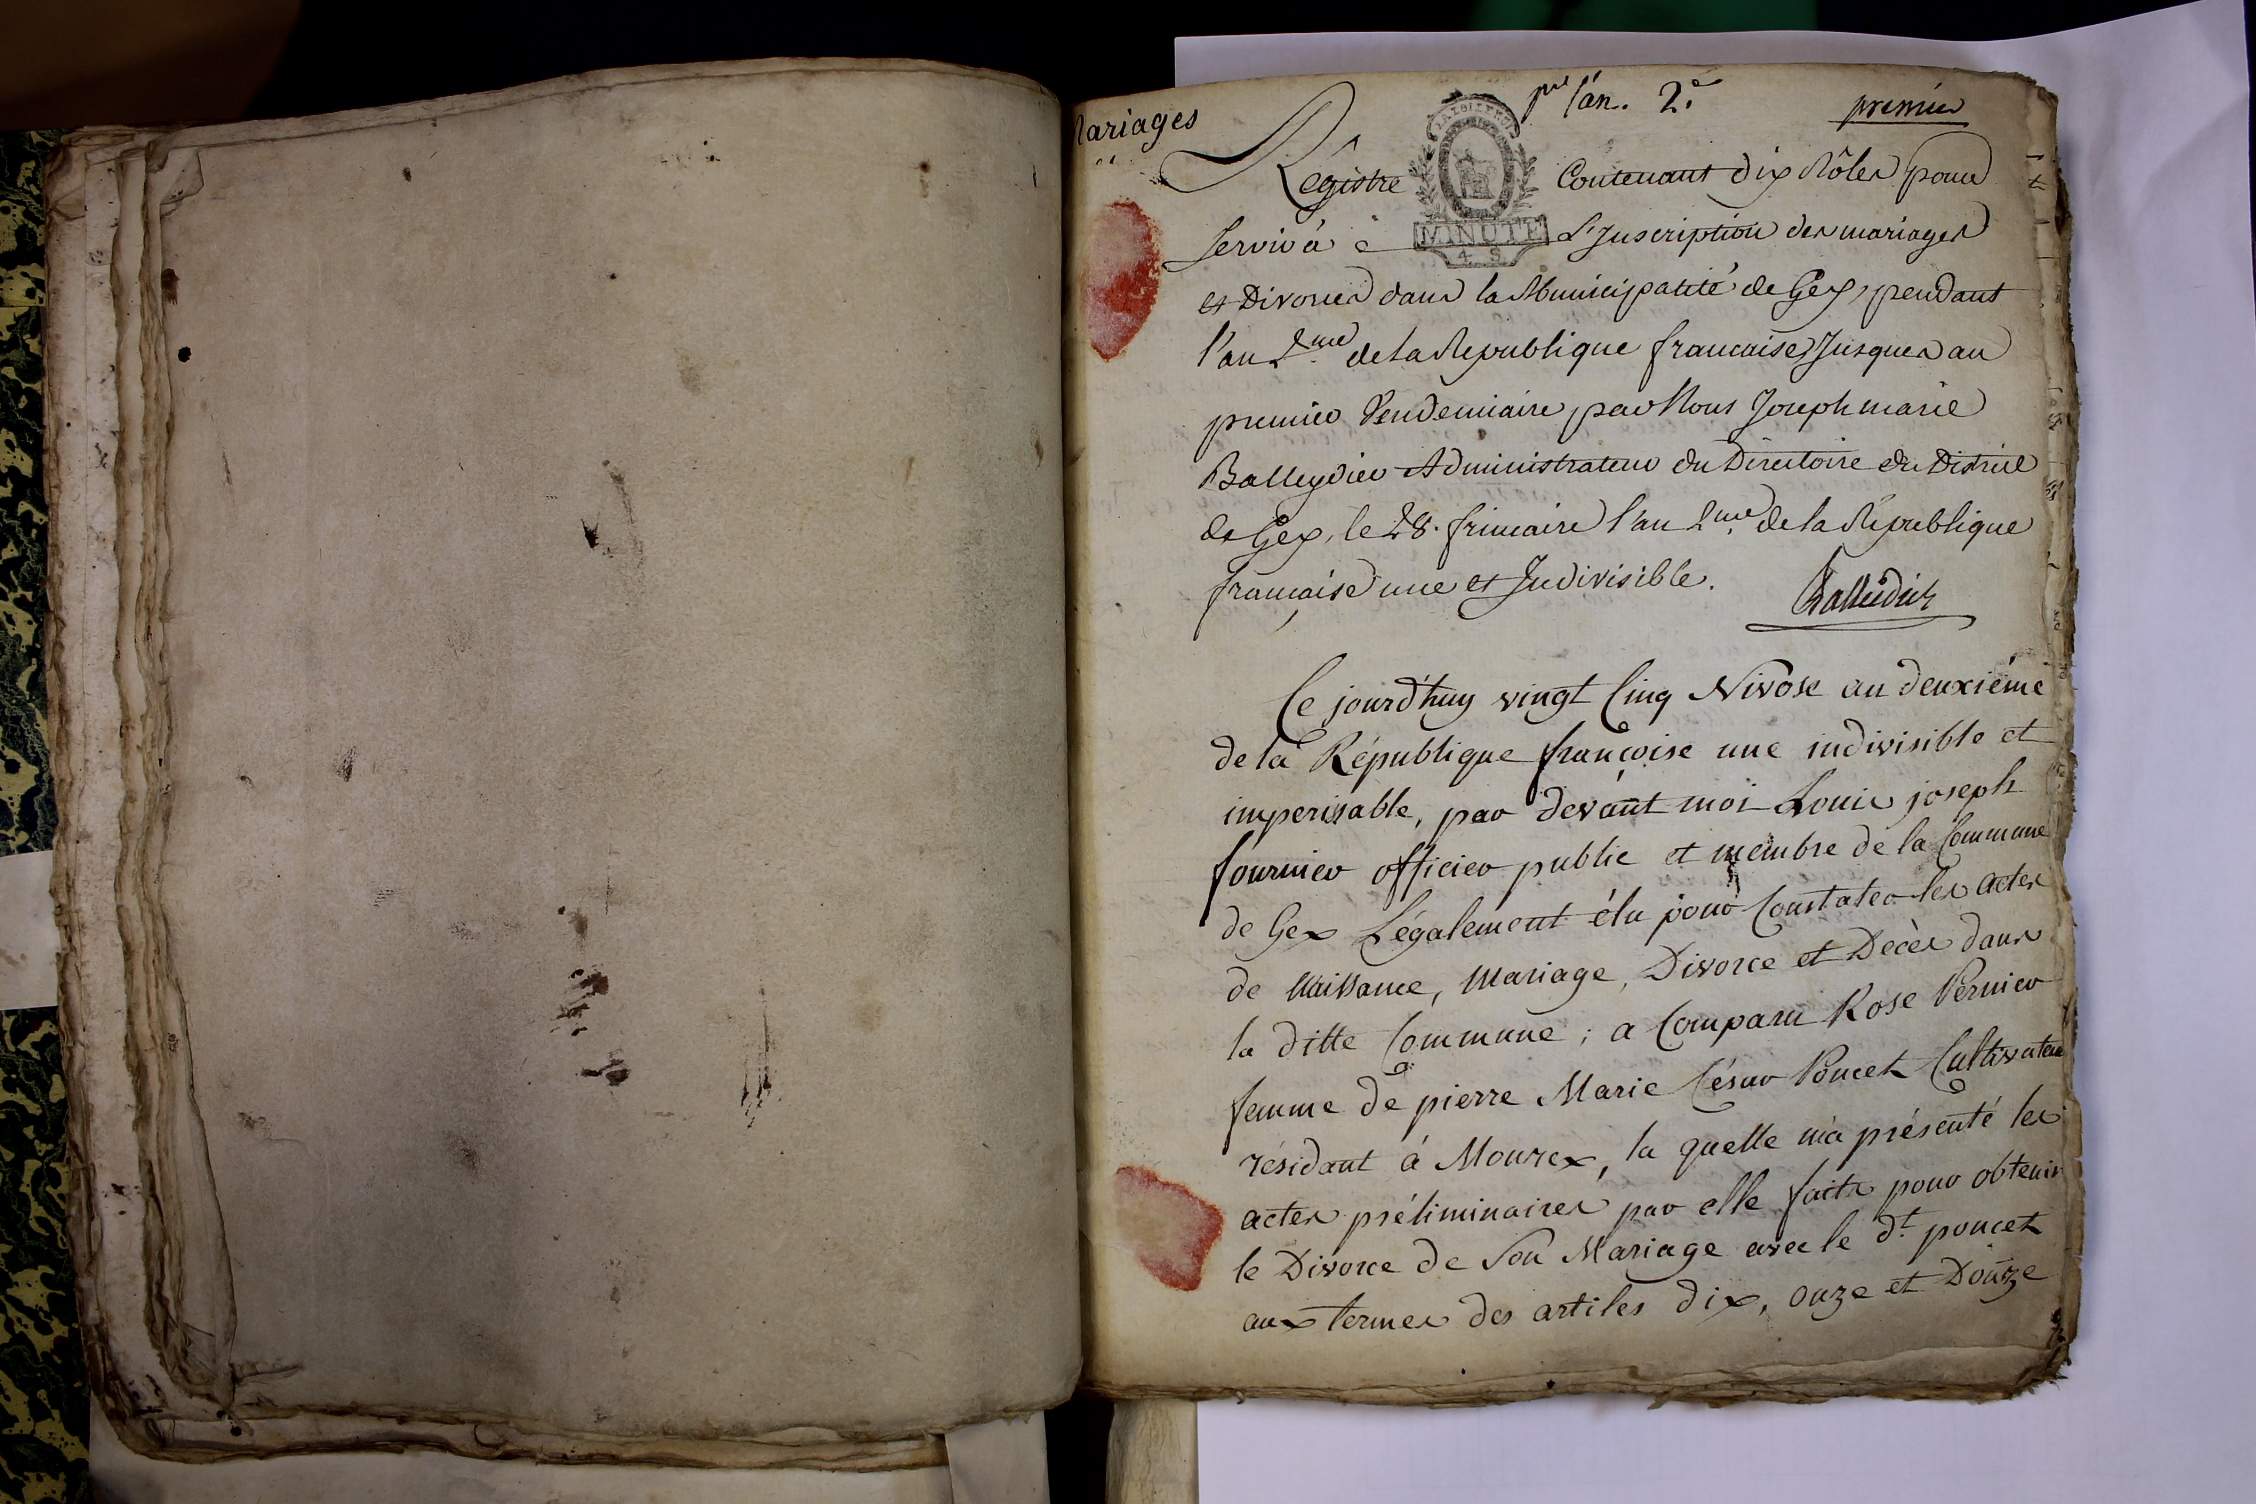 Mariages
pr l'an. 2.e
premier
Régistre Contenant dix Rôles pour
MINUTE
4. S.
Servir à L'Inscription des mariages
et Divorces dans la Municipalité de Gex, pendant
l'an 2.me de la Republique francaise, Jusques au
premier Vendemiaire par Nous Joseph marie
Balleydier Administrateur du Directoire du District
de Gex, le 28. frimaire l'an 2.me de la République
française une et Indivisible.
Balleidier
Ce jourd'huy vingt Cinq Nivose an deuxiéme
de la République françoise une indivisible et
imperissable, par devant moi Louis joseph
fournier officier public et membre de la Commune
de Gex Légalement élu pour Constater les actes
de Naissance, Mariage, Divorce et Décès dans
la ditte Commune ; a Comparu Rose Pernier
femme de pierre Marie César Poncet Cultivateur
résidant á Mourex, la quelle m'a présenté les
actes préliminaires par elle faits pour obtenir
le Divorce de Son Mariage avec le d.t poncet
aux termes des artiles dix, onze et Douze